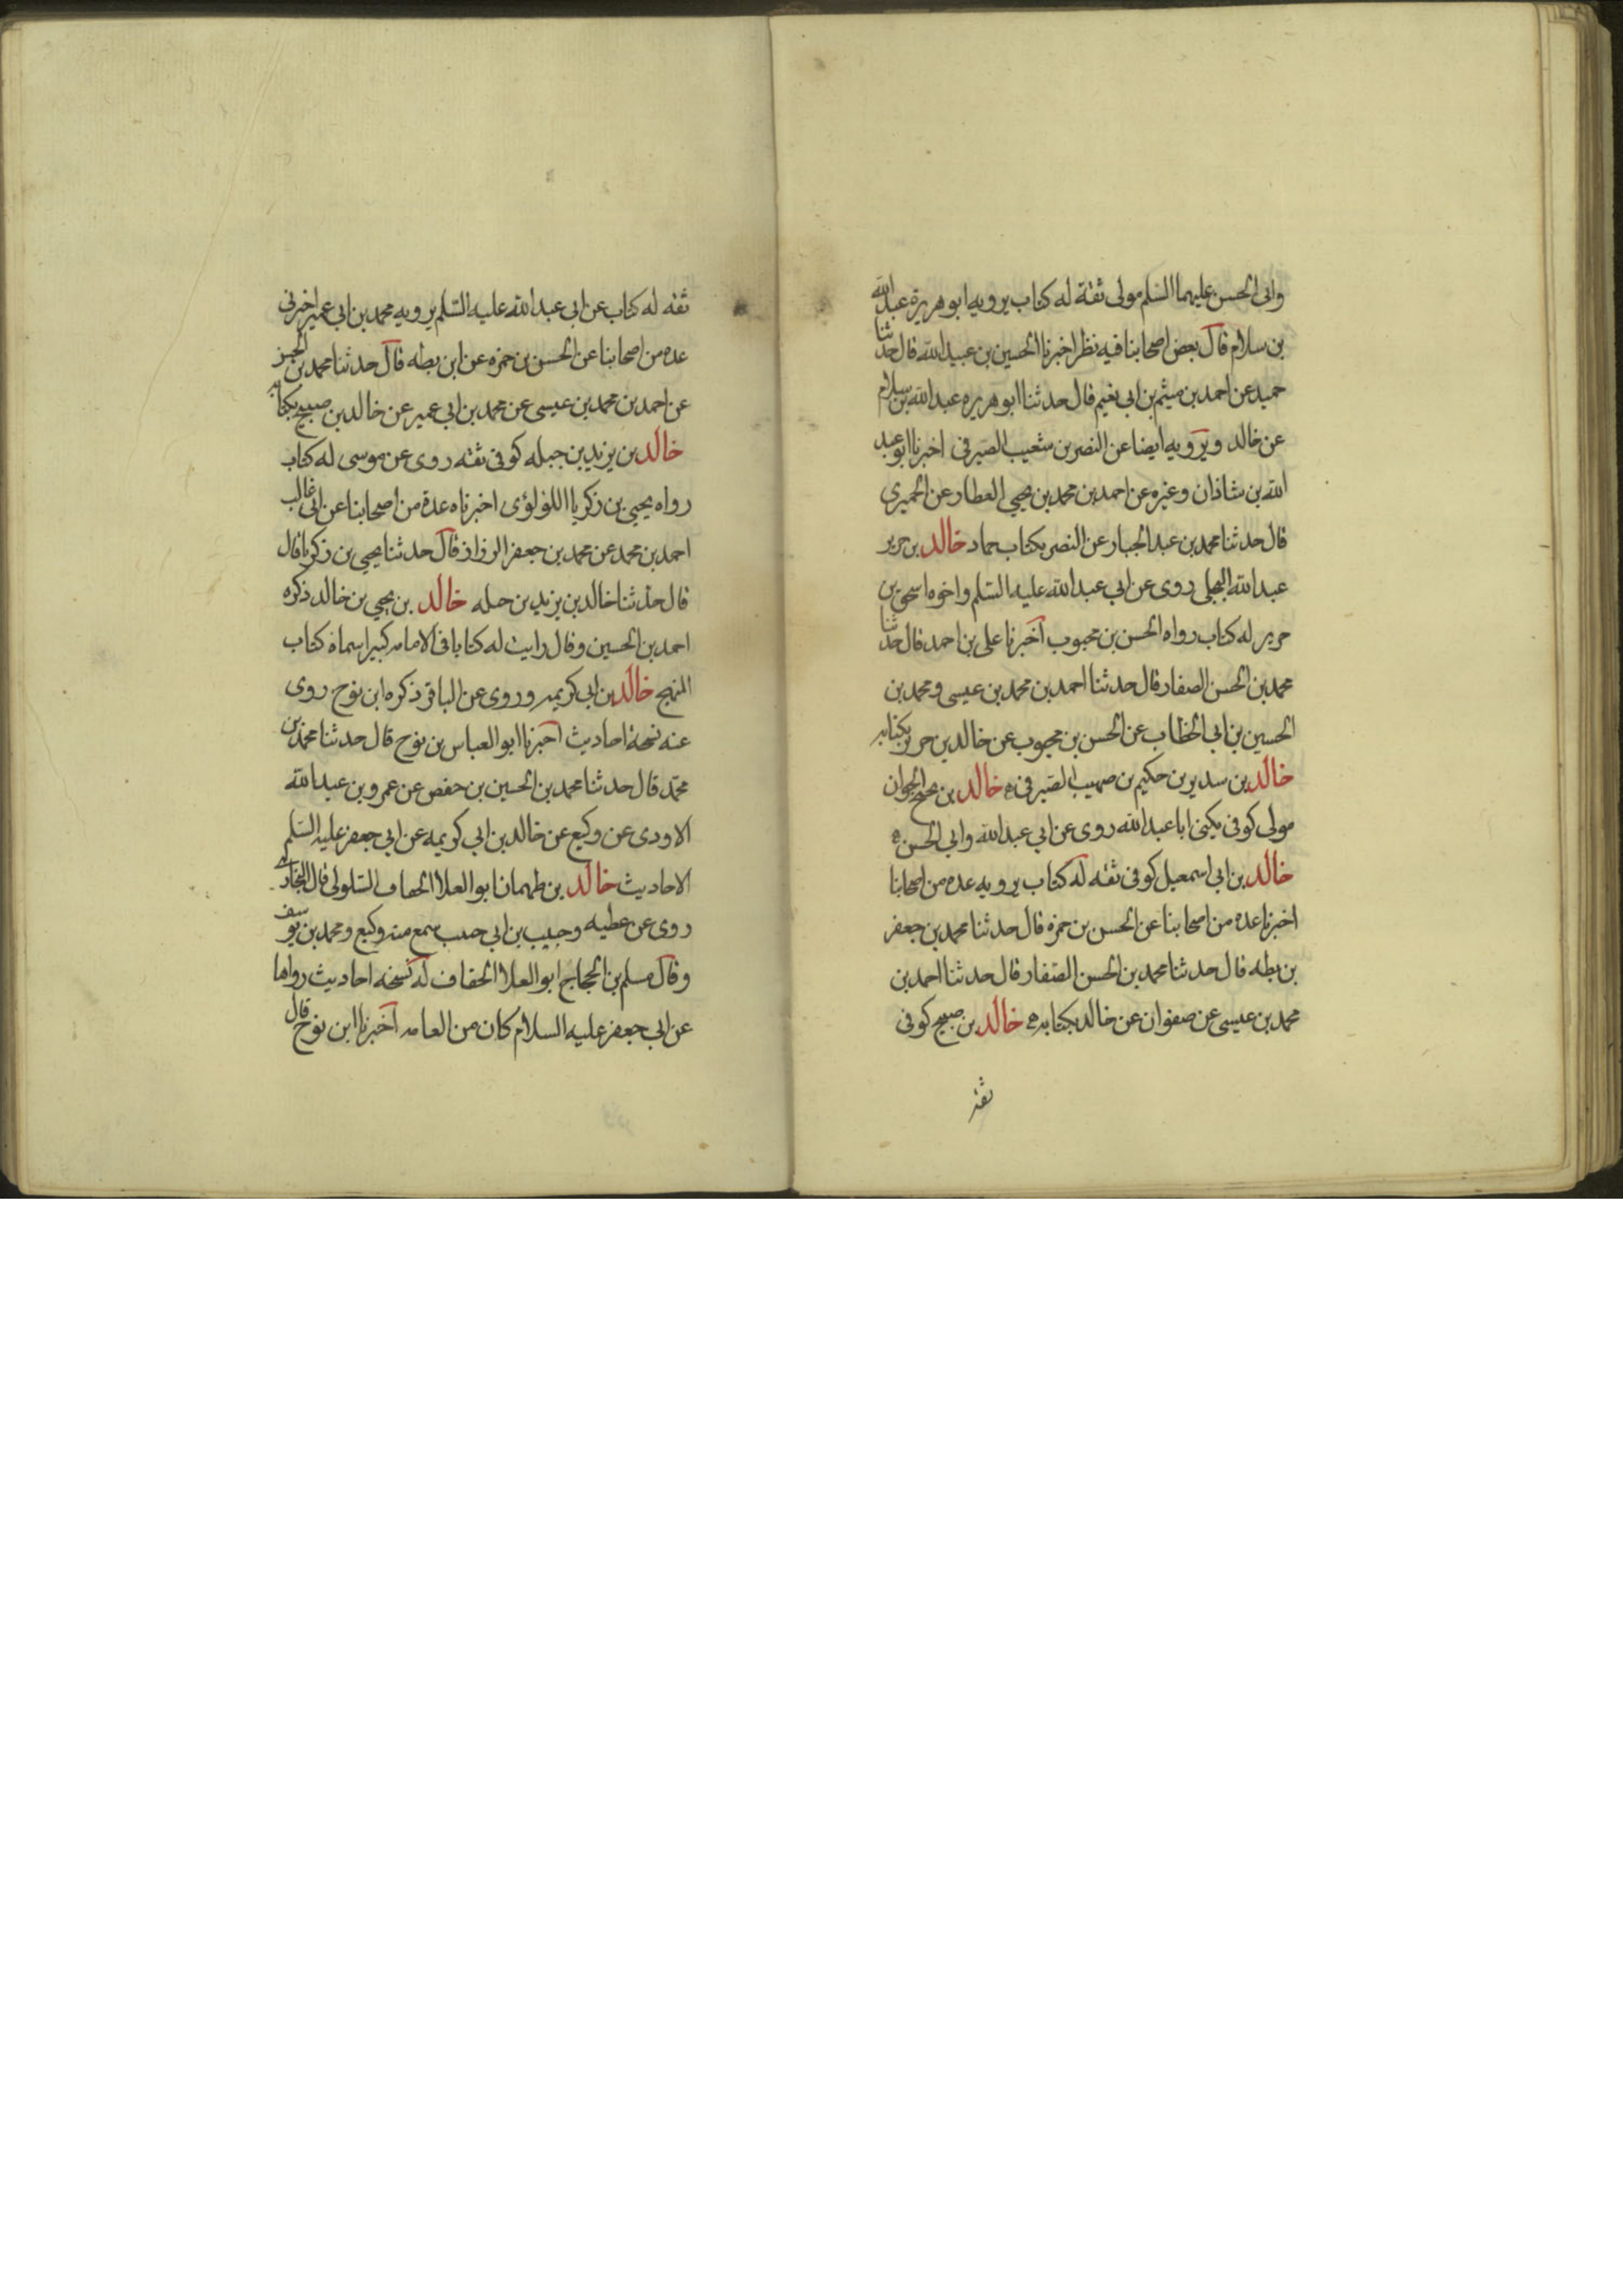 وابی الحسن علیهما السلم مولی ثقة له کتاب یرویه ابو هریرة عبد الله
بن سلام قال بعض اصحابنا فیه نظر اخبرنا الحسین بن عبید الله قال حدثنا
حمید عن احمد بن میثم بن ابی نعیم قال حدثنا ابو هریره عبد الله بن سلام
عن خالد ویرویه ایضا عن النضر بن شعیب الصیرفی اخبرنا ابو عبد
الله بن شاذان وغیره عن احمد بن محمد بن یحیی العطار عن الحمیری
قال حدثنا محمد بن عبد الجبار عن النضر بکتاب حماد خالد بن جریر
عبد الله البجلی روی عن ابی عبد الله علیه السلم واخوه اسحق بن
جریر له کتاب رواه الحسن بن محبوب اخبرنا علی بن احمد قال حدثنا
محمد بن الحسن الصفار قال حدثنا احمد بن محمد بن عیسی ومحمد بن
الحسین بن ابی الخطاب عن الحسن بن محبوب عن خالد بن جریر بکتابه
خالد بن سدیر بن حکیم بن صهیب الصیرفی خالد بن نجیح الجوان
مولی کوفی یکنی ابا عبد الله روی عن ابی عبد الله وابی الحسن
خالد بن ابی اسمعیل کوفی ثقه له کتاب یرویه عده من اصحابنا
اخبرنا عده من اصحابنا عن الحسن بن حمزه قال حدثنا محمد بن جعفر
بن بطه قال حدثنا محمد بن الحسن الصفار قال حدثنا احمد بن
محمد بن عیسی عن صفوان عن خالد بکتابه خالد بن صبیح کوفی
ثقه
ثقه له کتاب عن ابی عبد الله علیه السلم یرویه محمد بن ابی عمیر اخبرنی
عده من اصحابنا عن الحسن بن حمزه عن ابن بطه قال حدثنا محمد بن الحسن
عن احمد بن محمد بن عیسی عن محمد بن ابی عمیر عن خالد بن صبیح بکتابه
خالد بن یزید بن جبله کوفی ثقه روی عن موسی له کتاب
رواه یحیی بن زکریا اللولوی اخبرناه عدة من اصحابنا عن ابی غالب
احمد بن محمد عن محمد بن جعفر الرزاز قال حدثنا یحیی بن زکریا قال
قال حدثنا خالد بن یزید بن حبله خالد بن یحیی بن خالد ذکره
احمد بن الحسین وقال رایت له کتابا فی الامامه کبیر اسماه کتاب
المنهج خالد بن ابی کریمه وروی عن الباقر ذکره ابن نوح روی
عنه نسخة احادیث اخبرنا ابو العباس بن نوح قال حدثنا محمد بن
محمد قال حدثنا محمد بن الحسین بن حفص عن عمرو بن عبد الله
الاودی عن وکیع عن خالد بن ابی کریمه عن ابی جعفر علیه السلم
الاحادیث خالد بن طهمان ابو العلا الخفاف السلولی قال البخاری
روی عن عطیه وحبیب بن ابی حبیب سمع منه وکیع ومحمد بن یوسف
وقال مسلم بن الحجاج ابو العلا الخفاف له نسخه احادیث رواها
عن ابی جعفر علیه السلام کان من العامه اخبرنا ابن نوح قال